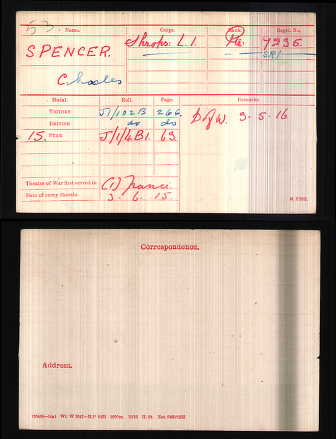 Name. Corps. Rank. Regtl. No.
SPENCER. Shrops. L.I. Pte. 7335.
Charles
Medal. Roll. Page. Remarks.
VICTORY J/1/102B 266. D of W. 3-5-16
BRITISH do do
15 STAR J/1/4B1. 63.
Theatre of War first served in (1) France
Date of entry therein 3. 6. 15.
Correspondence.
Address.